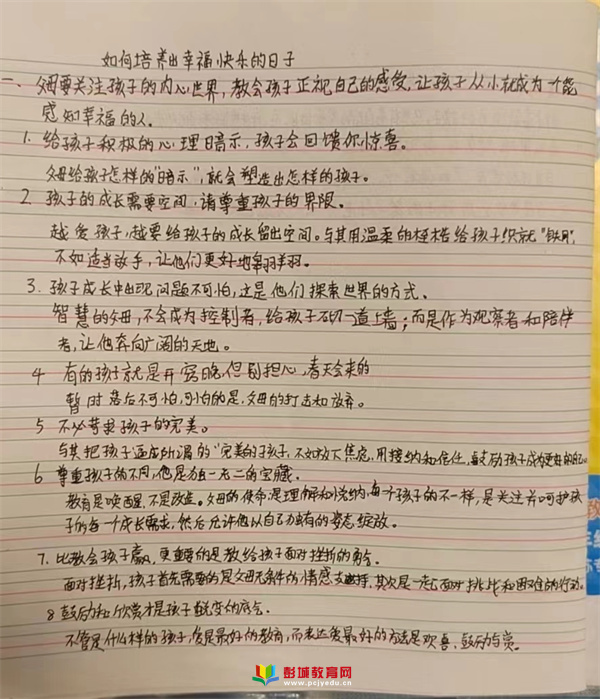 如何培养出幸福快乐的日子
一、父母要关注孩子的内心世界，教会孩子正视自己的感受，让孩子从小就成为一个能
感知幸福的人。
1. 给孩子积极的心理暗示，孩子会回馈你惊喜。
父母给孩子怎样的"暗示"，就会塑造出怎样的孩子。
2. 孩子的成长需要空间，请尊重孩子的界限。
越爱孩子，越要给孩子的成长留出空间。与其用温柔的桎梏给孩子织就"铁网"，
不如适当放手，让他们更好地翱翔。
3. 孩子成长中出现问题不可怕，这是他们探索世界的方式。
智慧的父母，不会成为控制者，给孩子砌一道墙；而是作为观察者和陪伴
者，让他奔向广阔的天地。
4 有的孩子就是开窍晚，但别担心，春天会来的
暂时落后不可怕，可怕的是，父母的打击和放弃。
5 不必苛求孩子的完美。
与其把孩子逼成所谓的"完美的孩子，不如放下焦虑，用接纳和信任，鼓励孩子成为更好的自己
6 尊重孩子的不同，他是独一无二的宝藏.
教育是唤醒，不是改造。父母的使命，是理解和悦纳，每个孩子的不一样，是关注并呵护孩
子的每一个成长需求，然后允许他以自己独有的姿态绽放。
7. 比教会孩子赢，更重要的是教给孩子面对挫折的勇气
面对挫折，孩子首先需要的是父母无条件的情感支持，其次是一起面对挑战和困难的行动。
8 鼓励和欣赏才是孩子蜕变的底气.
不管是什么样的孩子，爱是最好的教育，而表达爱最好的方法是欢喜、鼓励与赏。
彭城教育网
www.pcjyedu.cn